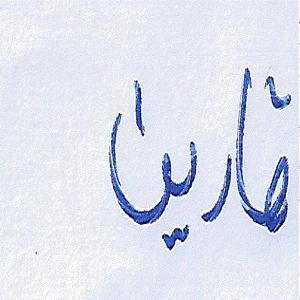 تمارين